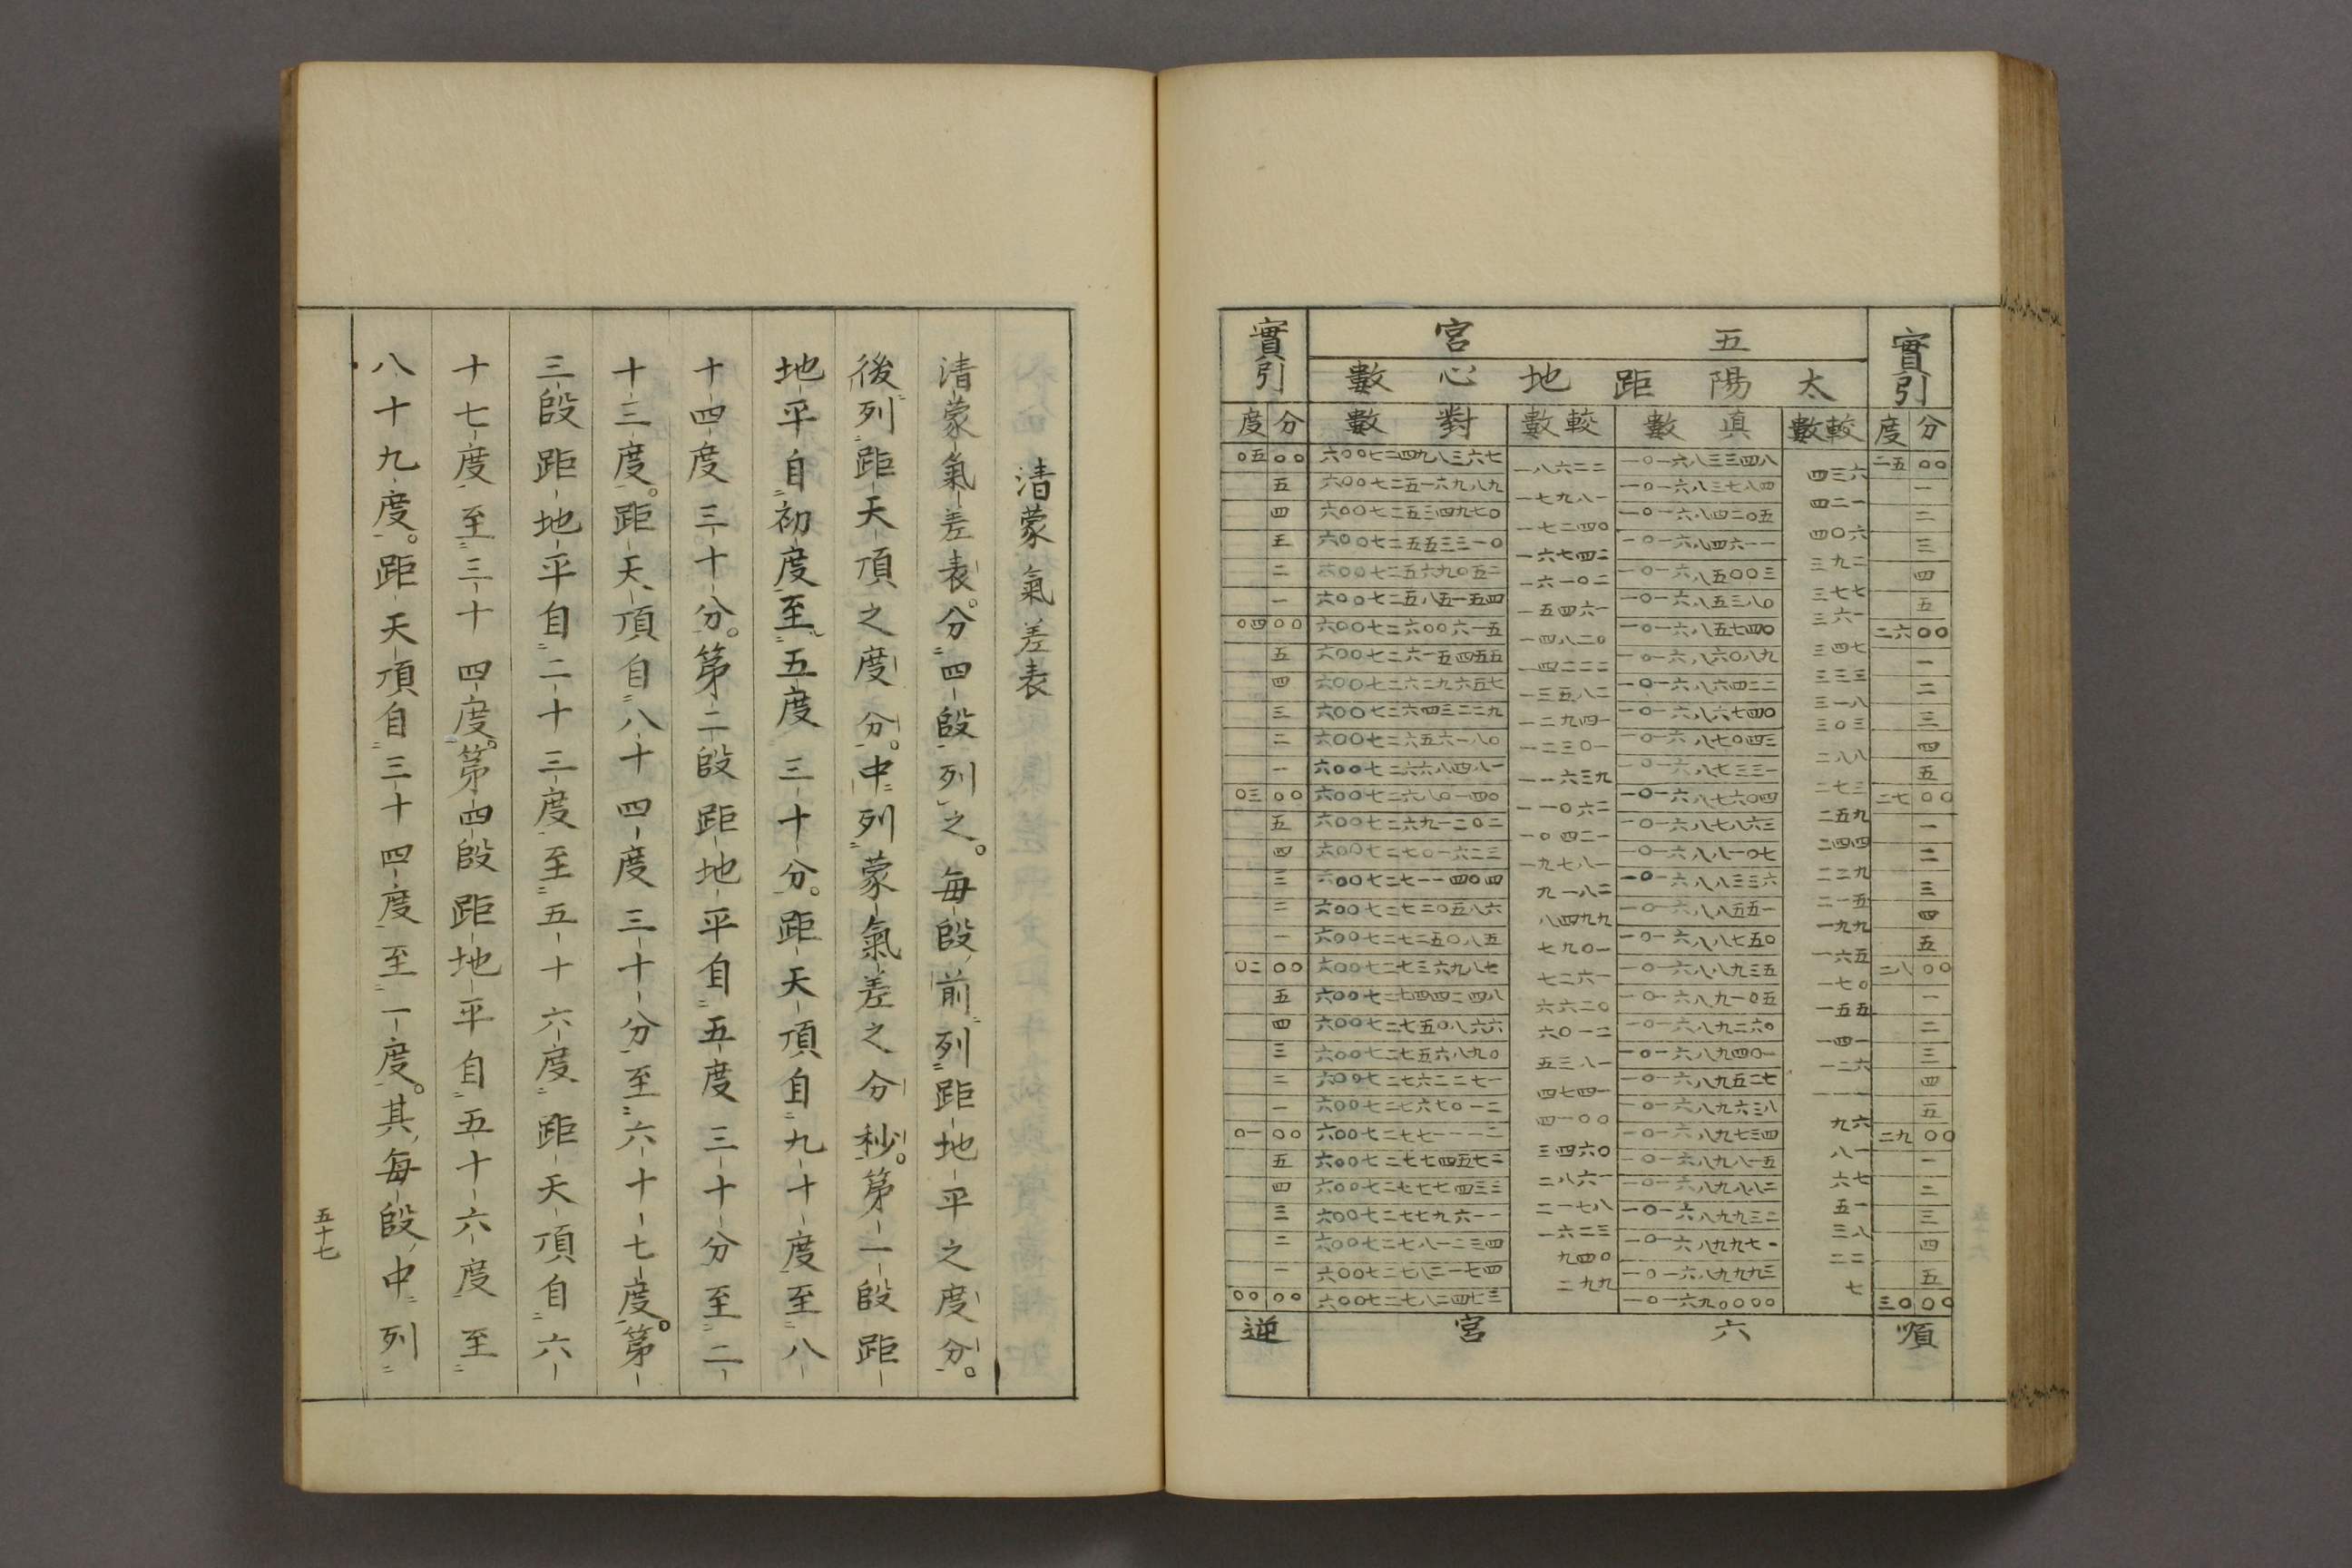 實引
五宮
太陽距地心數
實引
度分
較數
真數
較數
對數
分度
二五〇〇
一
二
三
四
五
二六〇〇
一
二
三
四
五
二七〇〇
一
二
三
四
五
二八〇〇
一
二
三
四
五
二九〇〇
一
二
三
四
五
三〇〇〇
順
四三六
四二一
四〇六
三九二
三七七
三六一
三四七
三三三
三一八
三〇三
二八八
二七三
二五九
二四四
二二九
二一五
一九九
一六五
一七〇
一五五
一四一
一二六
一一一
九六
八一
六七
五一
三八
二二
七
一〇一六八三三四八
一〇一六八三七八四
一〇一六八四二〇五
一〇一六八四六一一
一〇一六八五〇〇三
一〇一六八五三八〇
一〇一六八五七四〇
一〇一六八六〇八九
一〇一六八六四二二
一〇一六八六七四〇
一〇一六八七〇四三
一〇一六八七三三一
一〇一六八七六〇四
一〇一六八七八六三
一〇一六八八一〇七
一〇一六八八三三六
一〇一六八八五五一
一〇一六八八七五〇
一〇一六八八九三五
一〇一六八九一〇五
一〇一六八九二六〇
一〇一六八九四〇一
一〇一六八九五二七
一〇一六八九六三八
一〇一六八九七三四
一〇一六八九八一五
一〇一六八九八八二
一〇一六八九九三二
一〇一六八九九七一
一〇一六八九九九三
一〇一六九〇〇〇〇
一八六二二
一七九八一
一七二四〇
一六七四二
一六一〇二
一五四六一
一四八二〇
一四二二二
一三五八二
一二九四一
一二三〇一
一一六三九
一一〇六二
一〇四二一
一九七八一
九一八二
八四九九
七九〇一
七二六一
六六二〇
六〇一二
五三八一
四七四一
四一〇〇
三四六〇
二八六一
二一七八
一六二三
九四〇
二九九
六〇〇七二四九八三六七
六〇〇七二五一六九八九
六〇〇七二五三四九七〇
六〇〇七二五五三三一〇
六〇〇七二五六九〇五二
六〇〇七二五八五一五四
六〇〇七二六〇〇六一五
六〇〇七二六一五四五五
六〇〇七二六二九六五七
六〇〇七二六四三二二九
六〇〇七二六五六一八〇
六〇〇七二六六八四八一
六〇〇七二六八〇一四〇
六〇〇七二六九一二〇二
六〇〇七二七〇一六二三
六〇〇七二七一一四〇四
六〇〇七二七二〇五八六
六〇〇七二七二五〇八五
六〇〇七二七三六九八七
六〇〇七二七四四二四八
六〇〇七二七五〇八六六
六〇〇七二七五六八九〇
六〇〇七二七六二二七一
六〇〇七二七六七〇一二
六〇〇七二七七一一一二
六〇〇七二七七四五七二
六〇〇七二七七七四三三
六〇〇七二七七九六一一
六〇〇七二七八一二三四
六〇〇七二七八二一七四
六〇〇七二七八二四七三
六宮
〇五〇〇
五
四
三
二
一
〇四〇〇
五
四
三
二
一
〇三〇〇
五
四
三
二
一
〇二〇〇
五
四
三
二
一
〇一〇〇
五
四
三
二
一
〇〇〇〇
逆
清蒙氣差表
清蒙氣差表。分四段列之。每段前列距地平之度分。
後列距天頂之度分。中列蒙氣差之分秒。第一段距
地平自初度至五度三十分。距天頂自九十度至八
十四度三十分。第二段距地平自五度三十分至二
十三度。距天頂自八十四度三十分至六十七度。第
三段距地平自二十三度至五十六度距天頂自六
十七度至三十四度。第四段距地平自五十六度至
八十九度。距天頂自三十四度至一度。其每段中列
五十七